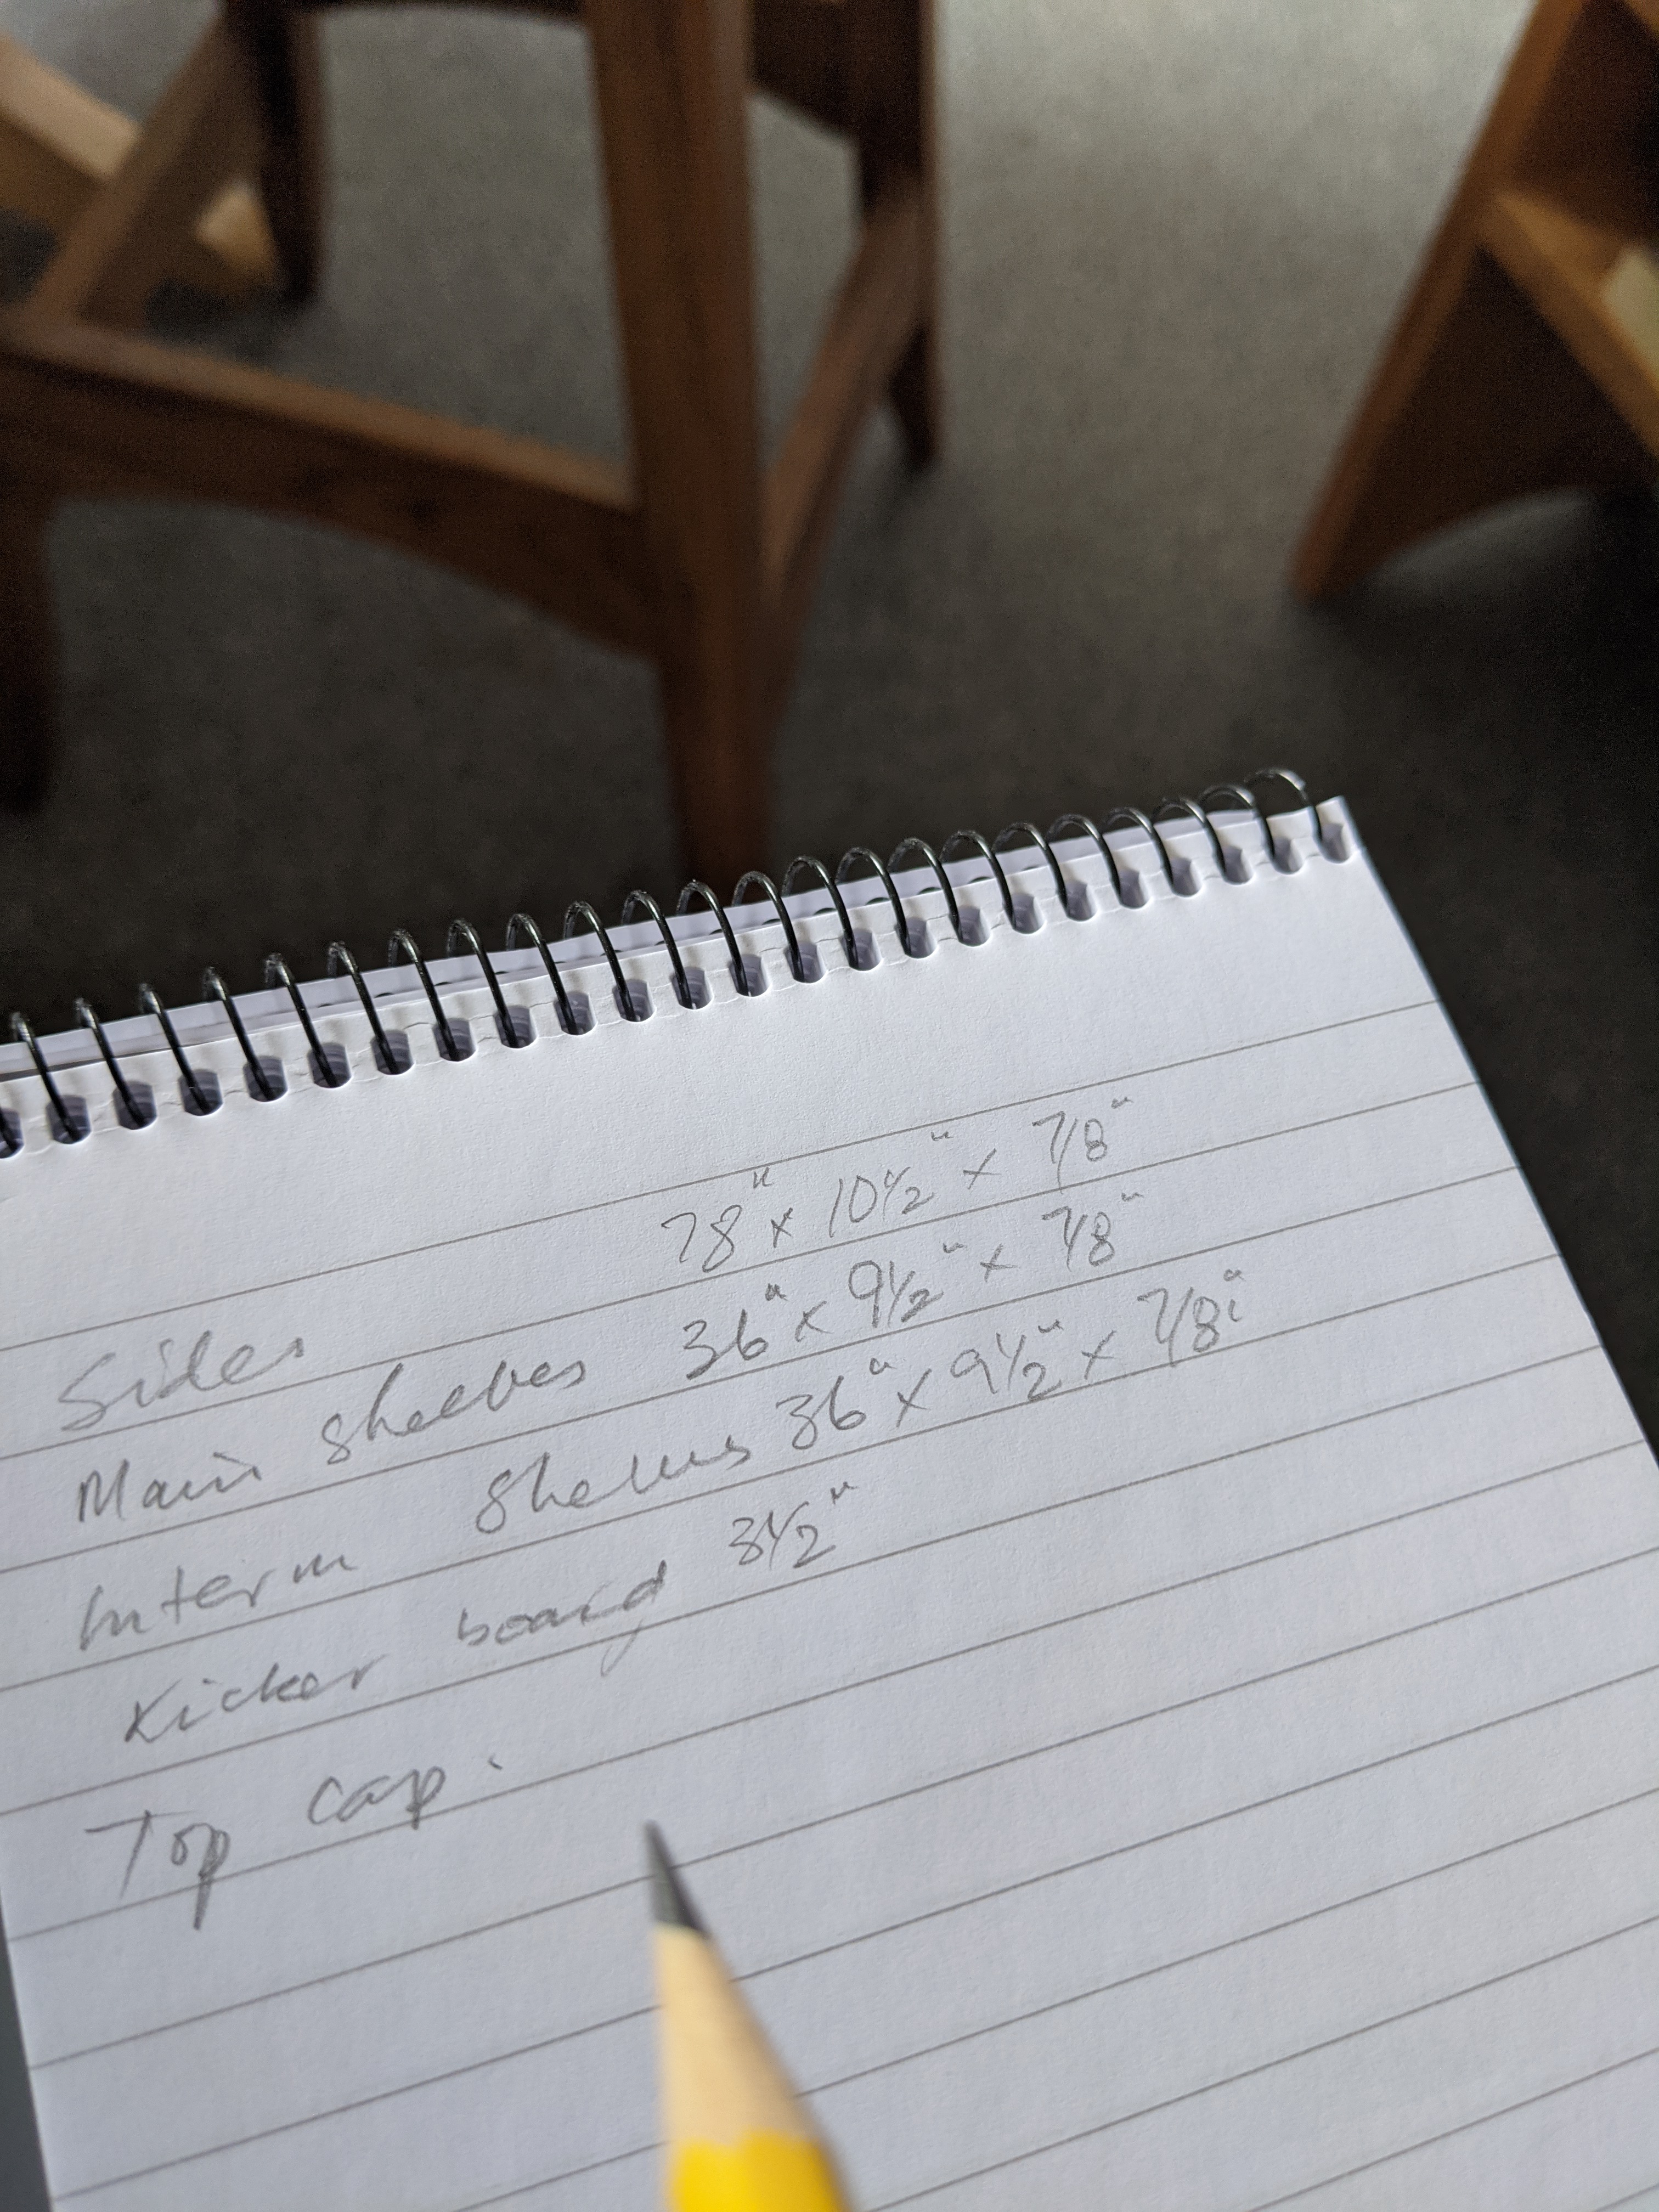 Sides 78" x 10 1/2" x 7/8"
Main Shelves 36" x 9 1/2" x 7/8"
Interm Shelves 36" x 9 1/2" x 7/8"
Kicker board 3 1/2"
Top cap.